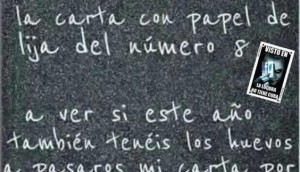 la carta con papel de
lija del número 8
VISTO EN
LA LOCURA
NO TIENE CURA
a ver si este año
también tenéis los huevos
a pasaros mi carta por